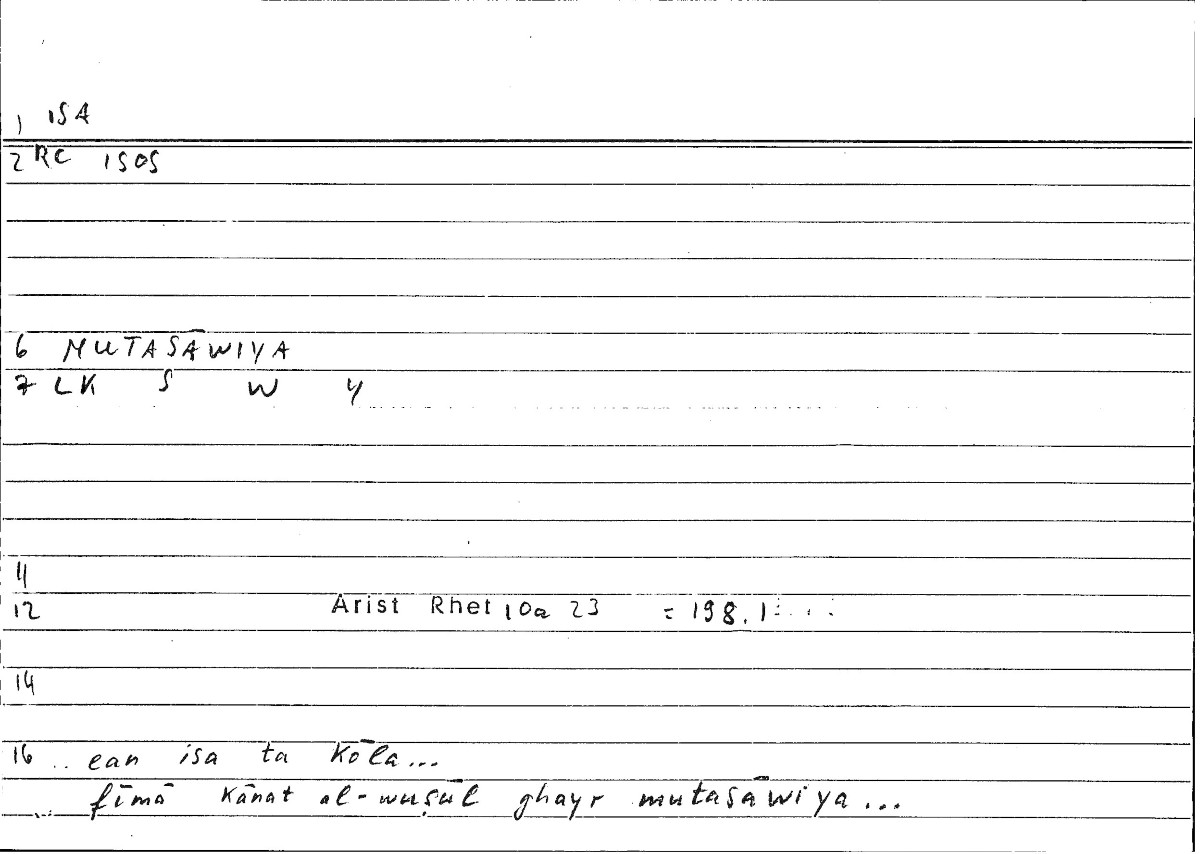 1 ISA
2 RC ISOS
6 MUTASĀWIYA
7 LK S W Y
11
12 Arist Rhet 10a 23 = 198.1
14
16 .. ean isa ta kōla...
... fīmā kānat al-wuṣūl ghayr mutasāwiya...